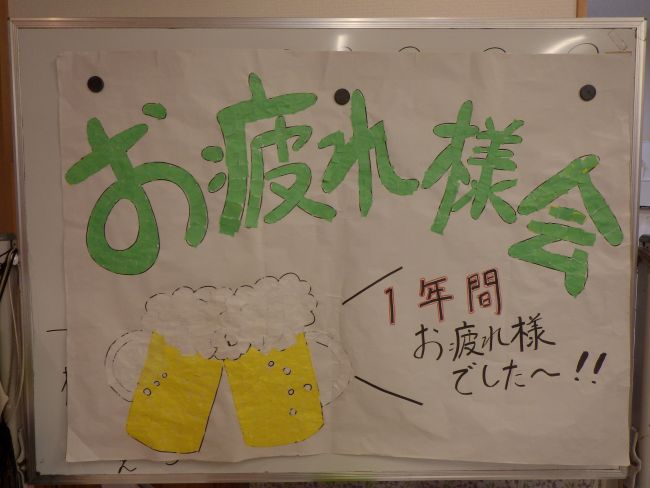 お疲れ様会
1年間
お疲れ様
でした〜!!